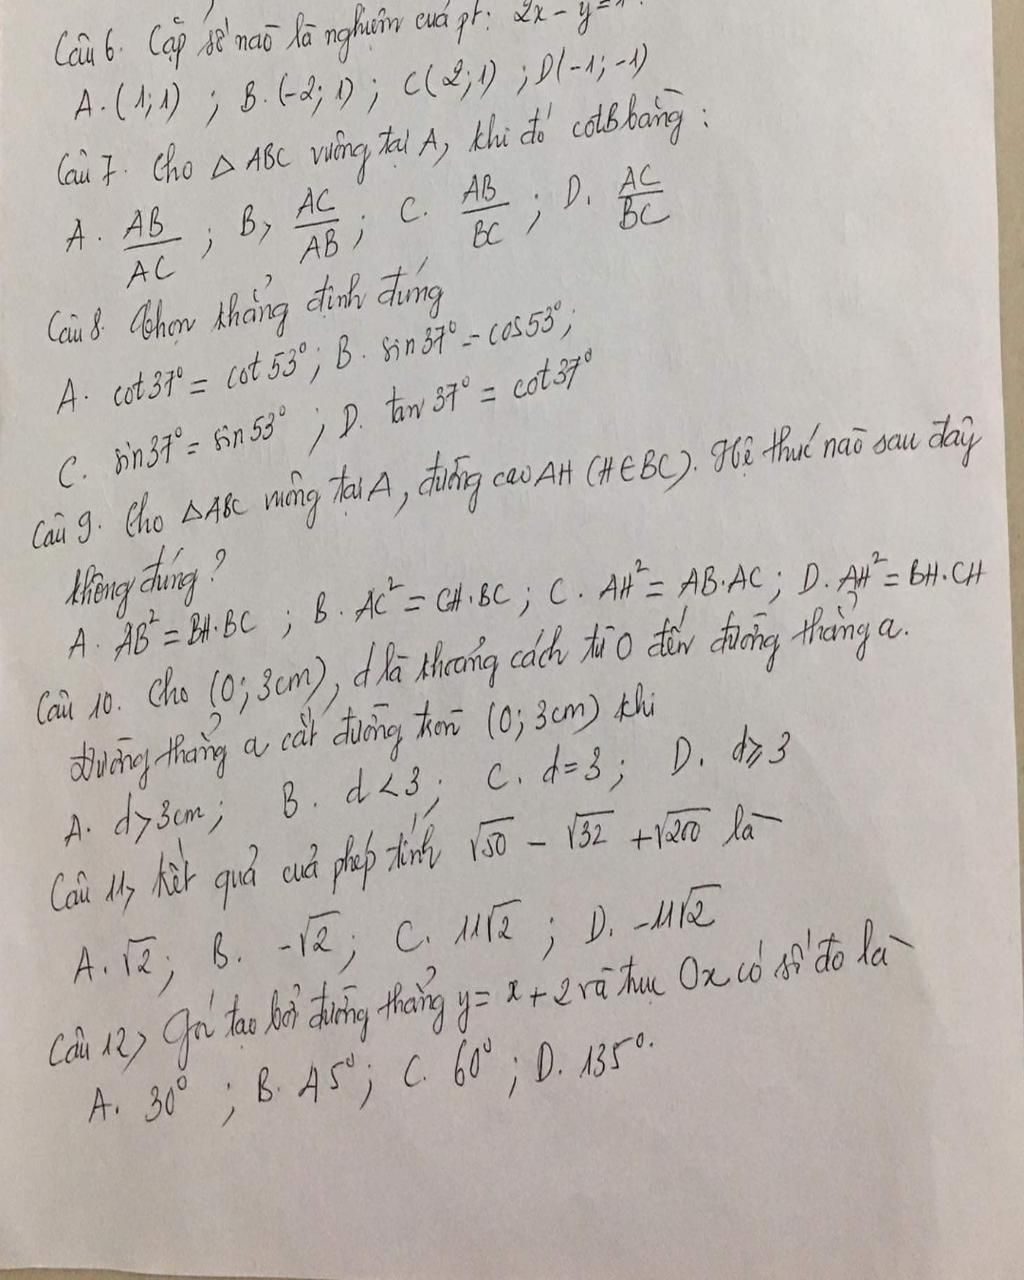 Câu 6. Cặp số nào là nghiệm của pt: 2x - y = 1.
A. (1;1) ; B. (-2; 1) ; C(2;1) ; D(-1; -1)
Câu 7. Cho △ ABC vuông tại A, khi đó cotB bằng :
A. AB/AC ; B, AC/AB ; C. AB/BC ; D. AC/BC
Câu 8. Chọn khẳng định đúng
A. cot37° = cot 53° ; B. sin37° = cos53° ;
C. sin37° = sin53° ; D. tan 37° = cot37°
Câu 9. Cho △ABC vuông tại A, đường cao AH (H∈BC). Hệ thức nào sau đây
không đúng ?
A. AB² = BH.BC ; B. AC² = CH.BC ; C. AH² = AB.AC ; D. AH² = BH.CH
Câu 10. Cho (O; 3cm), d là khoảng cách từ O đến đường thẳng a.
Đường thẳng a cắt đường tròn (O; 3cm) khi
A. d > 3cm ; B. d < 3 ; C. d = 3 ; D. d ⩾ 3
Câu 11, Kết quả của phép tính √50 - √32 + √200 là
A. √2 ; B. -√2 ; C. 11√2 ; D. -11√2
Câu 12, Góc tạo bởi đường thẳng y = x + 2 và trục Ox có số đo là
A. 30° ; B. 45° ; C. 60° ; D. 135°.